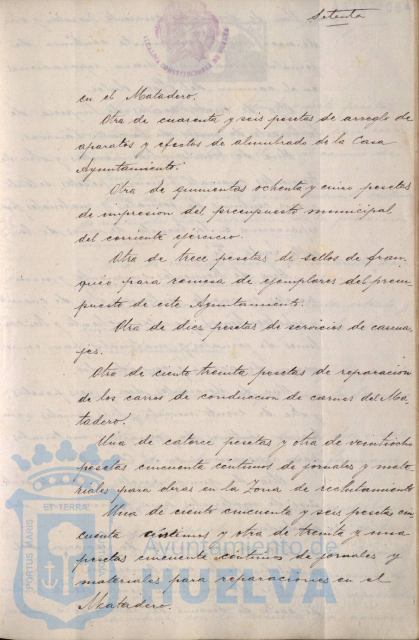 Setenta
en el Matadero.
Otra de cuarenta y seis pesetas de arreglo de
aparatos y efectos de alumbrado de la Casa
Ayuntamiento.
Otra de quinientas ochenta y cinco pesetas
de impresion del presupuesto municipal
del corriente ejercicio.
Otra de trece pesetas de sellos de fran-
queo para remesa de ejemplares del presu-
puesto de este Ayuntamiento.
Otra de diez pesetas de servicios de carrua-
jes.
Otra de ciento treinta pesetas de reparacion
de los carros de conduccion de carnes del Ma-
tadero.
Una de catorce pesetas y otra de veintiocho
pesetas cincuenta céntimos de jornales y mate-
riales para obras en la Zona de reclutamiento
Una de ciento cincuenta y seis pesetas cin-
cuenta céntimos y otra de treinta y una
pesetas cincuenta céntimos de jornales y
materiales para reparaciones en el
Matadero.
PORTUS MARIS ET TERRAE
Ayuntamiento de
HUELVA